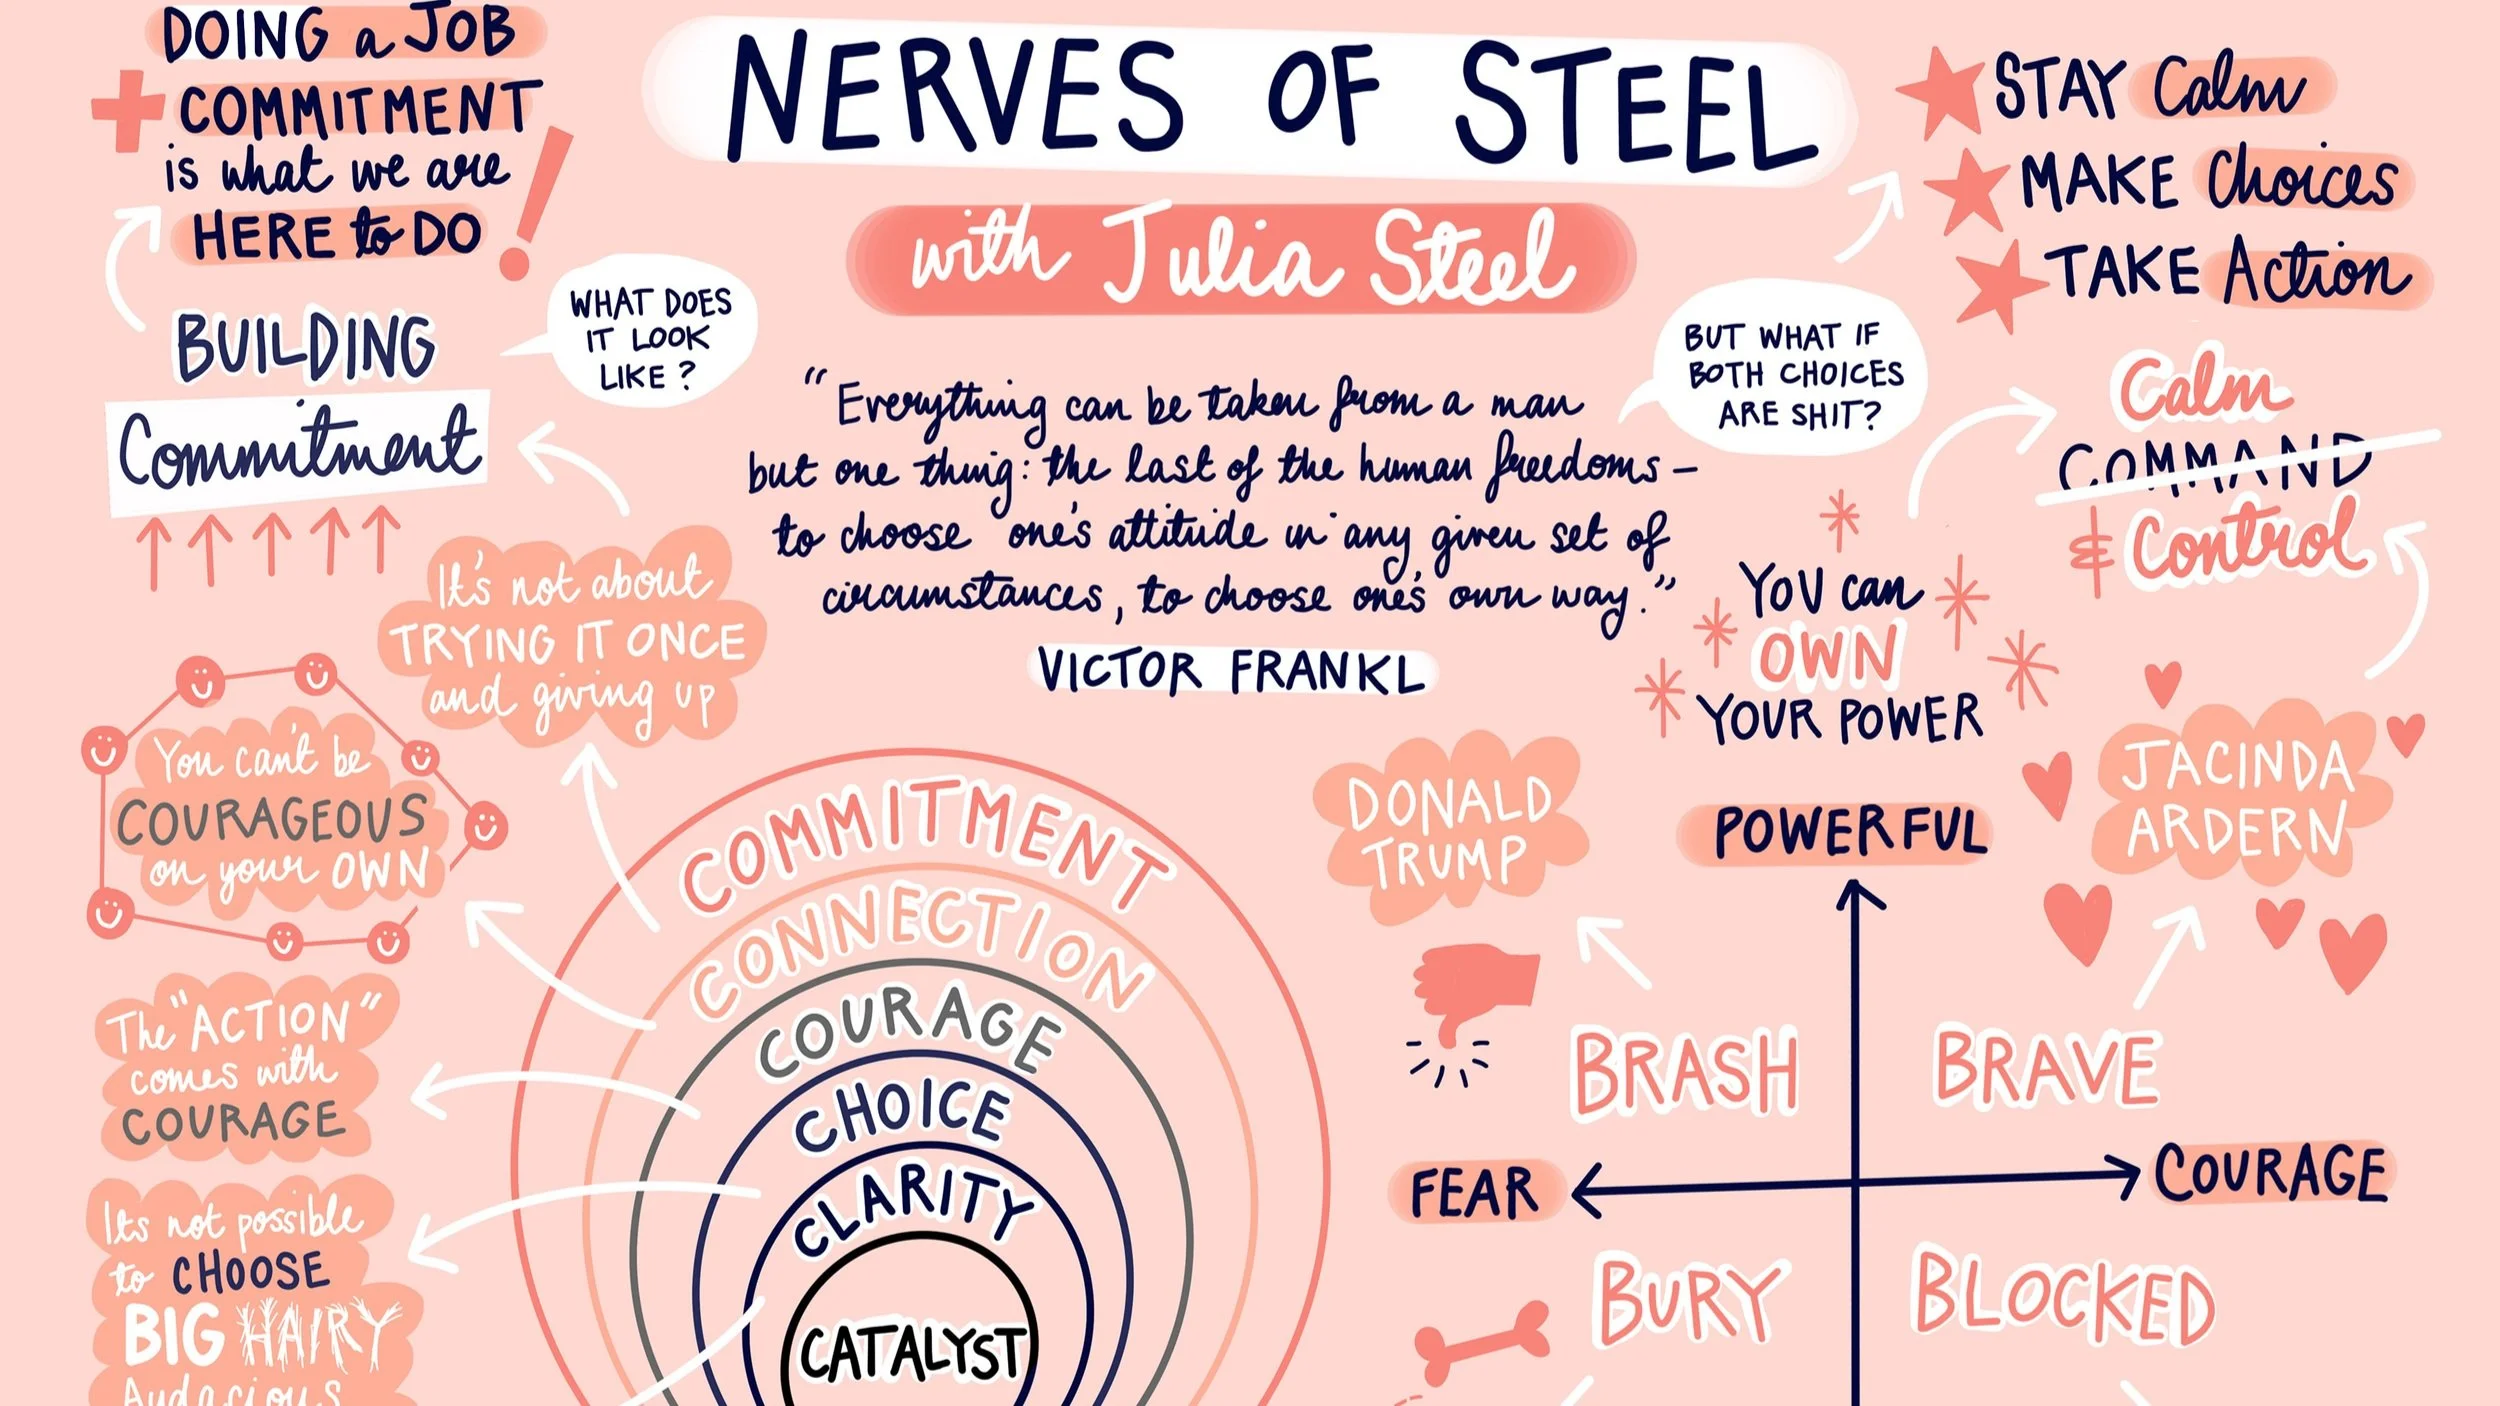 DOING a JOB
COMMITMENT
is what we are
HERE to DO
BUILDING
Commitment
WHAT DOES
IT LOOK
LIKE?
NERVES OF STEEL
with Julia Steel
"Everything can be taken from a man
but one thing: the last of the human freedoms –
to choose one's attitude in any given set of
circumstances, to choose one's own way."
VICTOR FRANKL
BUT WHAT IF
BOTH CHOICES
ARE SHIT?
STAY Calm
MAKE Choices
TAKE Action
Calm
COMMAND
& Control
YOU can
OWN
YOUR POWER
It's not about
TRYING IT ONCE
and giving up
You can't be
COURAGEOUS
on your OWN
The "ACTION"
comes with
COURAGE
Its not possible
to CHOOSE
BIG HAIRY
Audacious
COMMITMENT
CONNECTION
COURAGE
CHOICE
CLARITY
CATALYST
DONALD
TRUMP
POWERFUL
JACINDA
ARDERN
BRASH
BRAVE
FEAR
COURAGE
BURY
BLOCKED